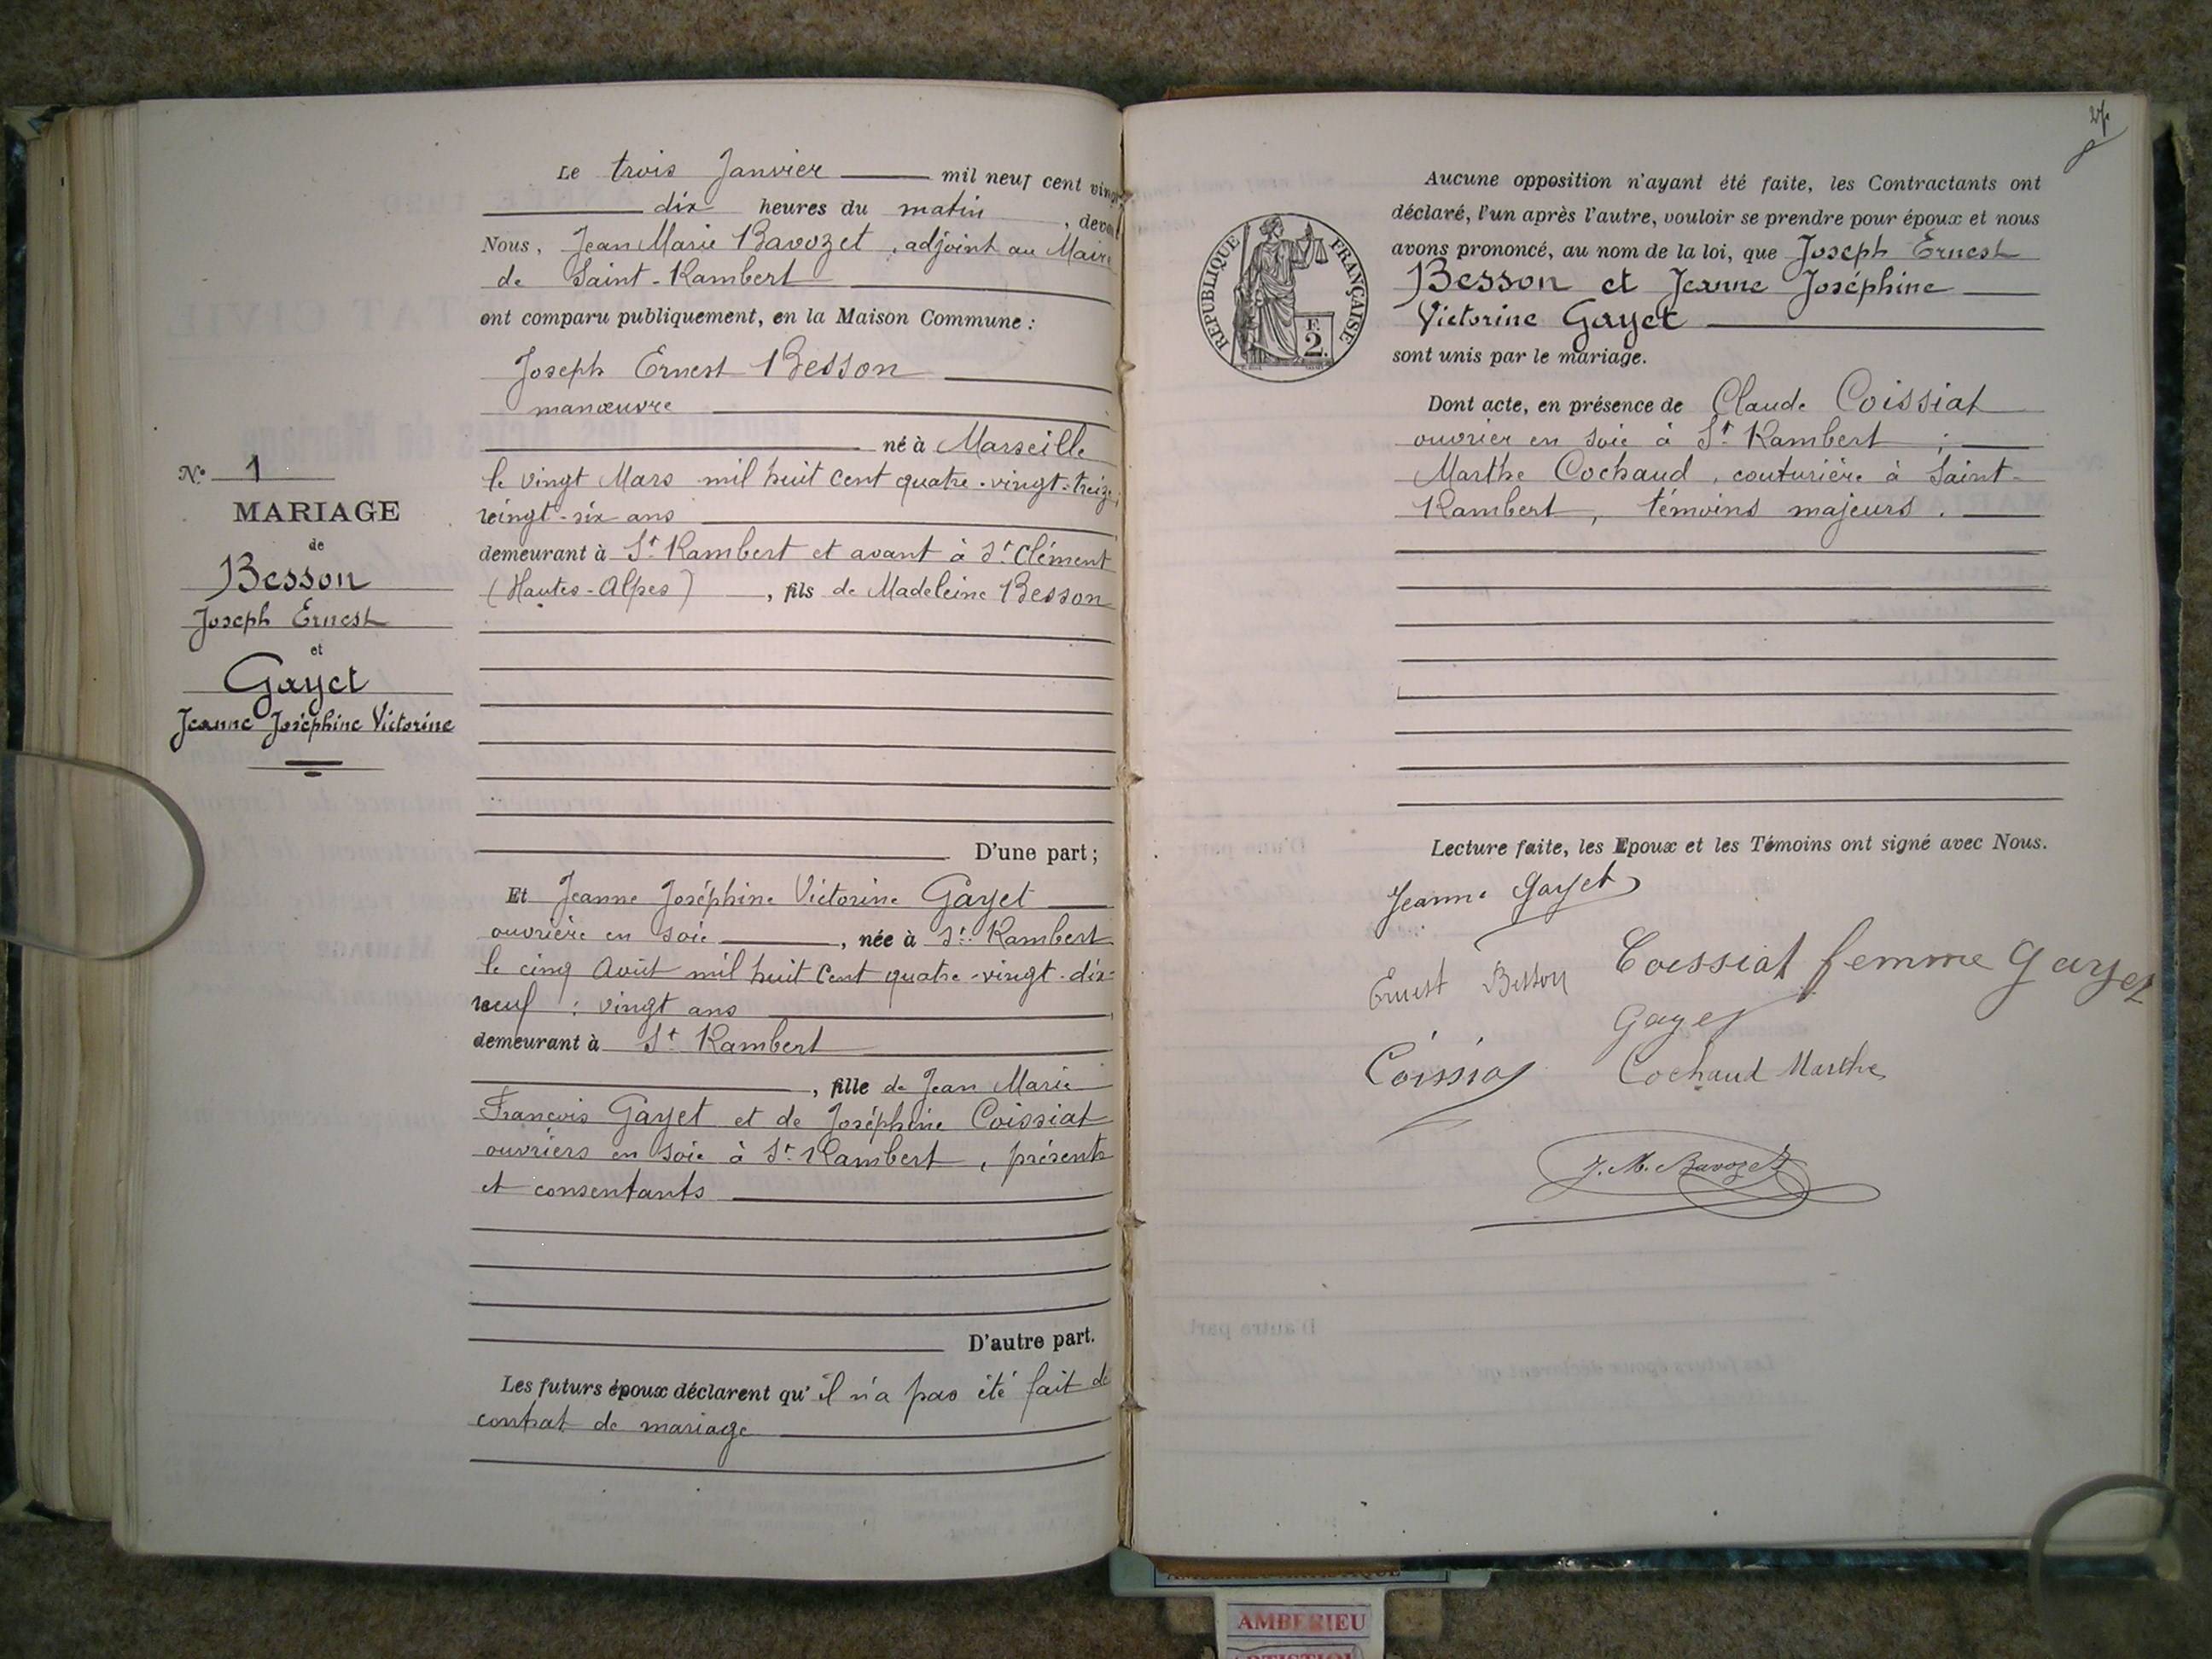 N.º 1
MARIAGE
de
Besson
Joseph Ernest
et
Gayet
Jeanne Joséphine Victorine
Le trois Janvier mil neuf cent vingt
dix heures du matin, devant
Nous, Jean Marie Bavozet, adjoint au Maire
de Saint-Rambert
ont comparu publiquement, en la Maison Commune :
Joseph Ernest Besson
manœuvre
né à Marseille
le vingt Mars mil huit cent quatre-vingt-treize ;
vingt-six ans
demeurant à St Rambert et avant à St Clément
(Hautes-Alpes), fils de Madeleine Besson
D'une part ;
Et Jeanne Joséphine Victorine Gayet
ouvrière en soie, née à St Rambert
le cinq Août mil huit cent quatre-vingt-dix-
neuf : vingt ans
demeurant à St Rambert
, fille de Jean Marie
François Gayet et de Joséphine Coissiat
ouvriers en soie à St Rambert, présents
et consentants
D'autre part.
Les futurs époux déclarent qu'il n'a pas été fait de
contrat de mariage
REPUBLIQUE FRANÇAISE
F.
2.
Aucune opposition n'ayant été faite, les Contractants ont
déclaré, l'un après l'autre, vouloir se prendre pour époux et nous
avons prononcé, au nom de la loi, que Joseph Ernest
Besson et Jeanne Joséphine
Victorine Gayet
sont unis par le mariage.
Dont acte, en présence de Claude Coissiat
ouvrier en soie à St Rambert ;
Marthe Cochaud, couturière à Saint-
Rambert, témoins majeurs.
Lecture faite, les Epoux et les Témoins ont signé avec Nous.
Jeanne Gayet
Ernest Besson
Coissiat femme Gayet
Gayet
Coissiat
Cochaud Marthe
J. M. Bavozet
AMBERIEU